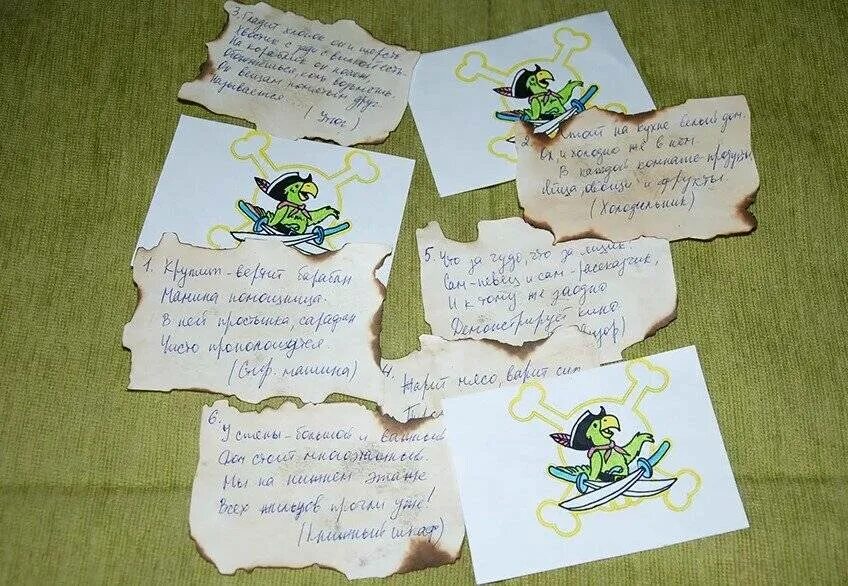 3. Гладит платье она и шерсть
На кораблик он похож,
Обожжешься, коль возьмешь
Он вещам помятым друг.
Называется
(Утюг)
2. Стоит на кухне белый дом.
Ох, и холодно же в нем.
В каждой комнате продукты
Яйца, овощи и фрукты
(Холодильник)
1. Крутит-вертит барабан
Мамина помощница.
В ней простынка, сарафан
Чисто прополощутся.
(Стир. машина)
5. Что за чудо, что за ящик!
Сам-певец и сам-рассказчик,
И к тому же заодно
Демонстрирует кино
4.
Жарит мясо, варит суп
6.
У стены-большой и важный
Дом стоит многоэтажный.
Мы на нижнем этаже
Всех жильцов прочли уже!
(Книжный шкаф)